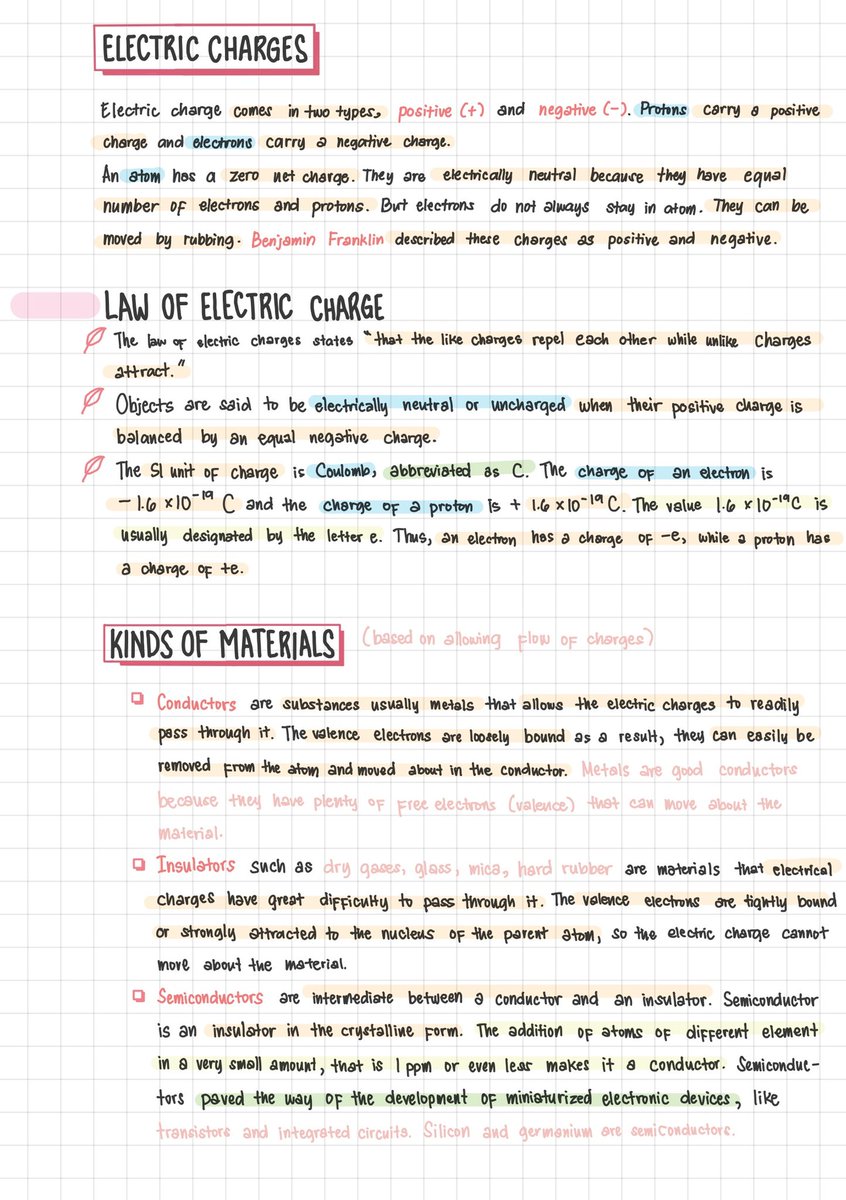 ELECTRIC CHARGES
Electric charge comes in two types, positive (+) and negative (-). Protons carry a positive
charge and electrons carry a negative charge.
An atom has a zero net charge. They are electrically neutral because they have equal
number of electrons and protons. But electrons do not always stay in atom. They can be
moved by rubbing. Benjamin Franklin described these charges as positive and negative.
LAW OF ELECTRIC CHARGE
The law of electric charges states "that the like charges repel each other while unlike charges
attract."
Objects are said to be electrically neutral or uncharged when their positive charge is
balanced by an equal negative charge.
The SI unit of charge is Coulomb, abbreviated as C. The charge of an electron is
-1.6 ×10⁻¹⁹ C and the charge of a proton is + 1.6 ×10⁻¹⁹ C. The value 1.6 ×10⁻¹⁹C is
usually designated by the letter e. Thus, an electron has a charge of -e, while a proton has
a charge of +e.
KINDS OF MATERIALS (based on allowing flow of charges)
❑ Conductors are substances usually metals that allows the electric charges to readily
pass through it. The valence electrons are loosely bound as a result, they can easily be
removed from the atom and moved about in the conductor. Metals are good conductors
because they have plenty of free electrons (valence) that can move about the
material.
❑ Insulators such as dry gases, glass, mica, hard rubber are materials that electrical
charges have great difficulty to pass through it. The valence electrons are tightly bound
or strongly attracted to the nucleus of the parent atom, so the electric charge cannot
move about the material.
❑ Semiconductors are intermediate between a conductor and an insulator. Semiconductor
is an insulator in the crystalline form. The addition of atoms of different element
in a very small amount, that is 1 ppm or even less makes it a conductor. Semiconduc-
tors paved the way of the development of miniaturized electronic devices, like
transistors and integrated circuits. Silicon and germanium are semiconductors.